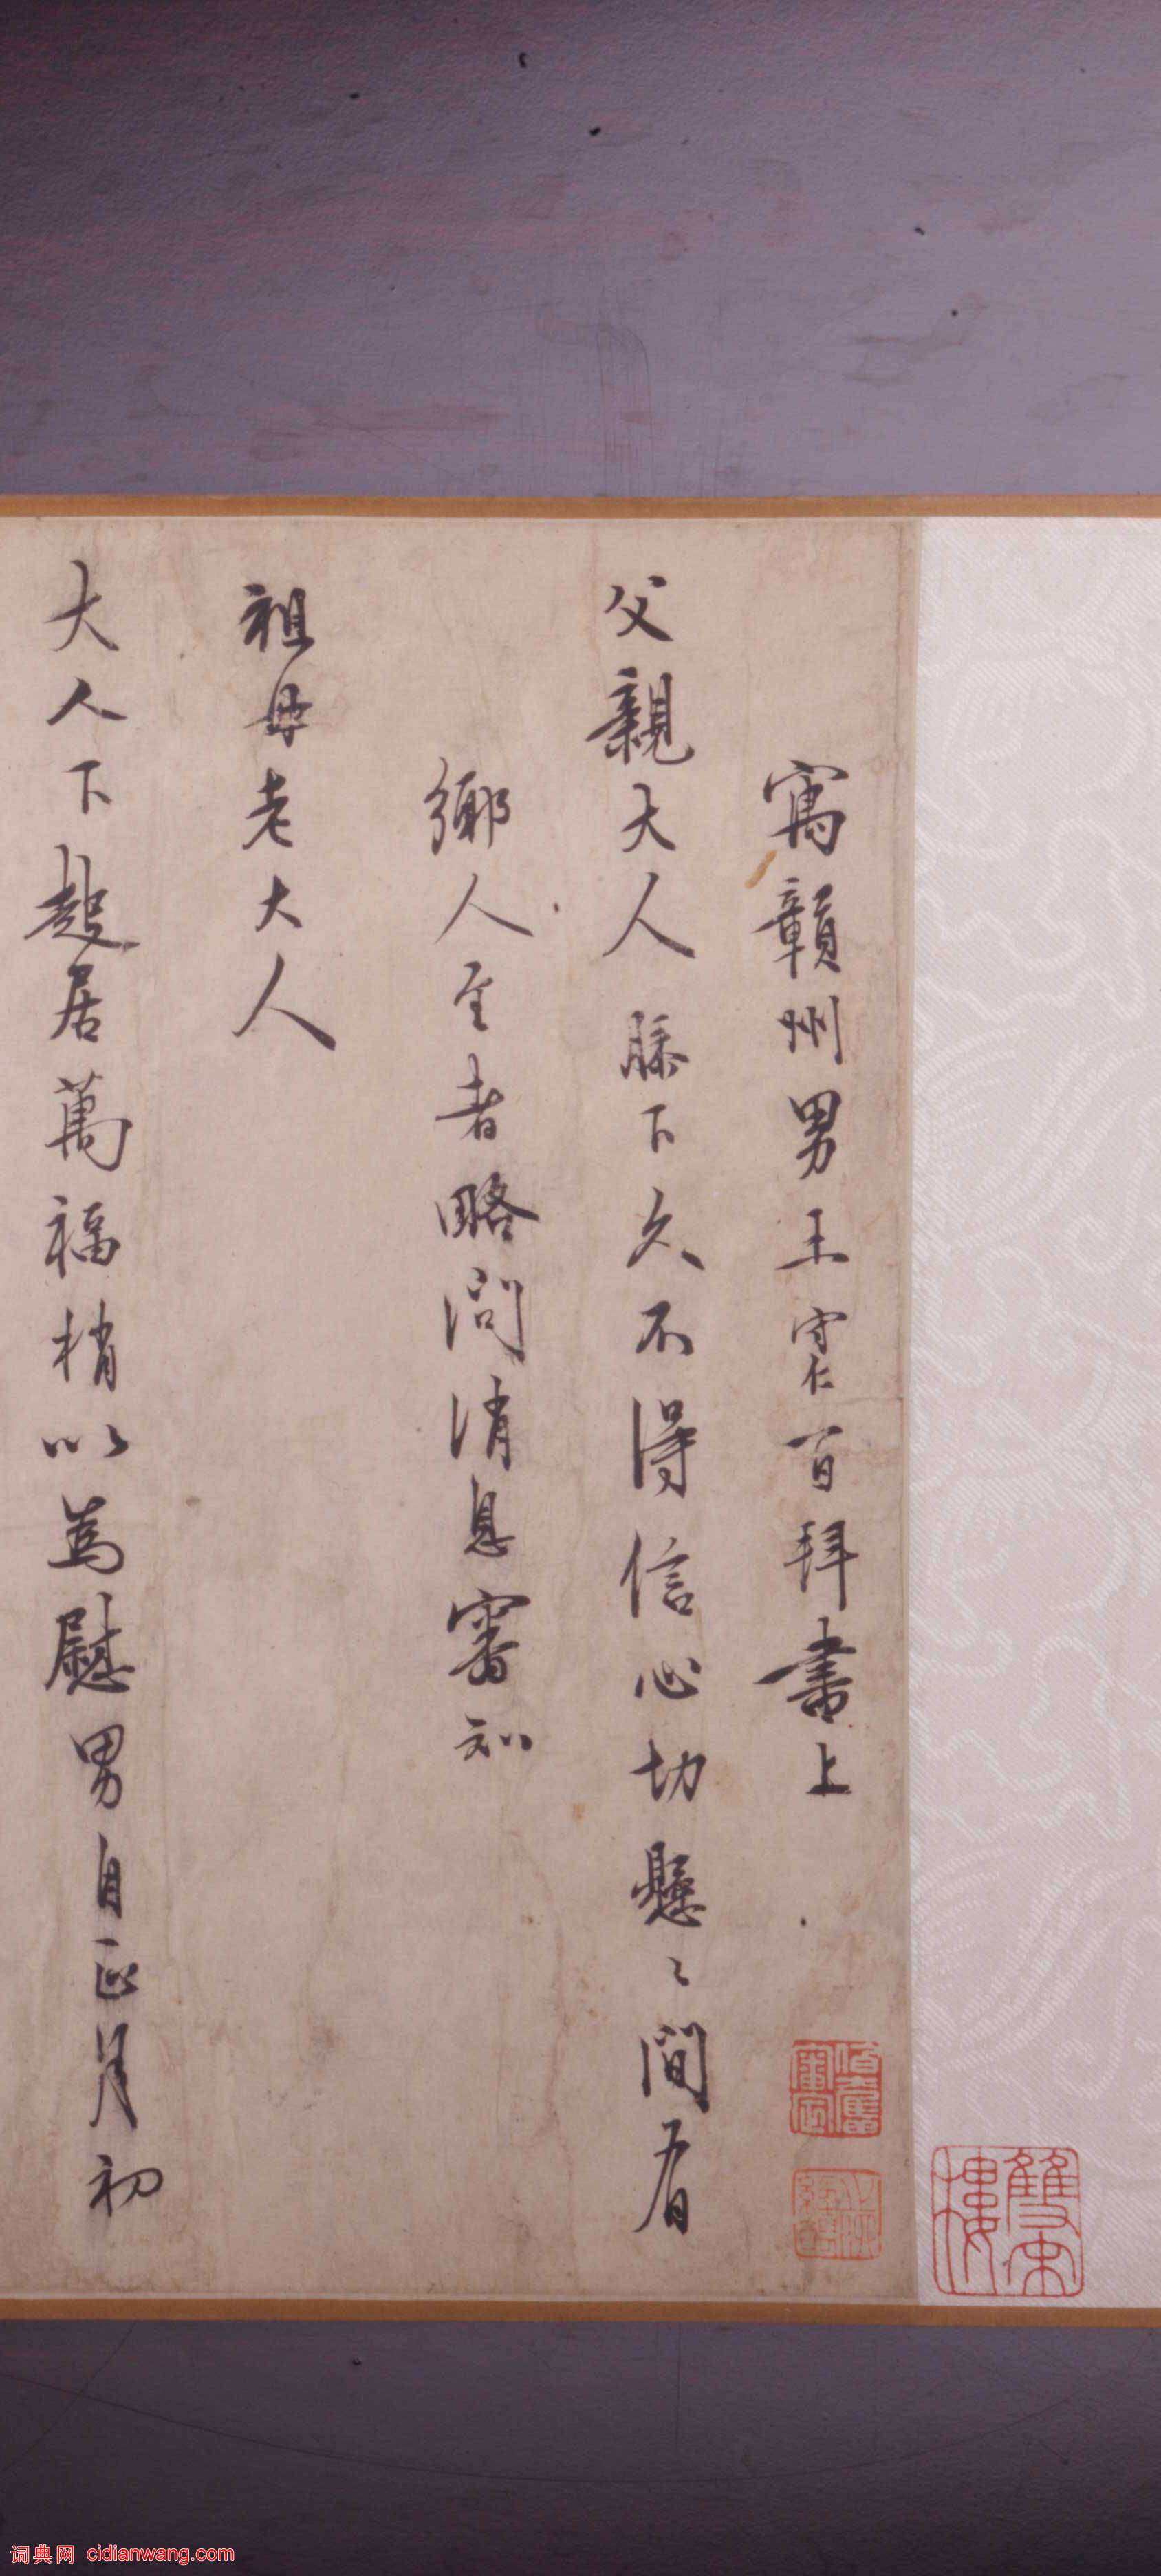 寓贛州男王守仁百拜書上
父親大人膝下久不得信心切懸〻間有
鄉人至者略問消息審知
祖母老大人
大人下起居萬福稍以為慰男自正月初
雙宋樓
词典网 cidianwang.com